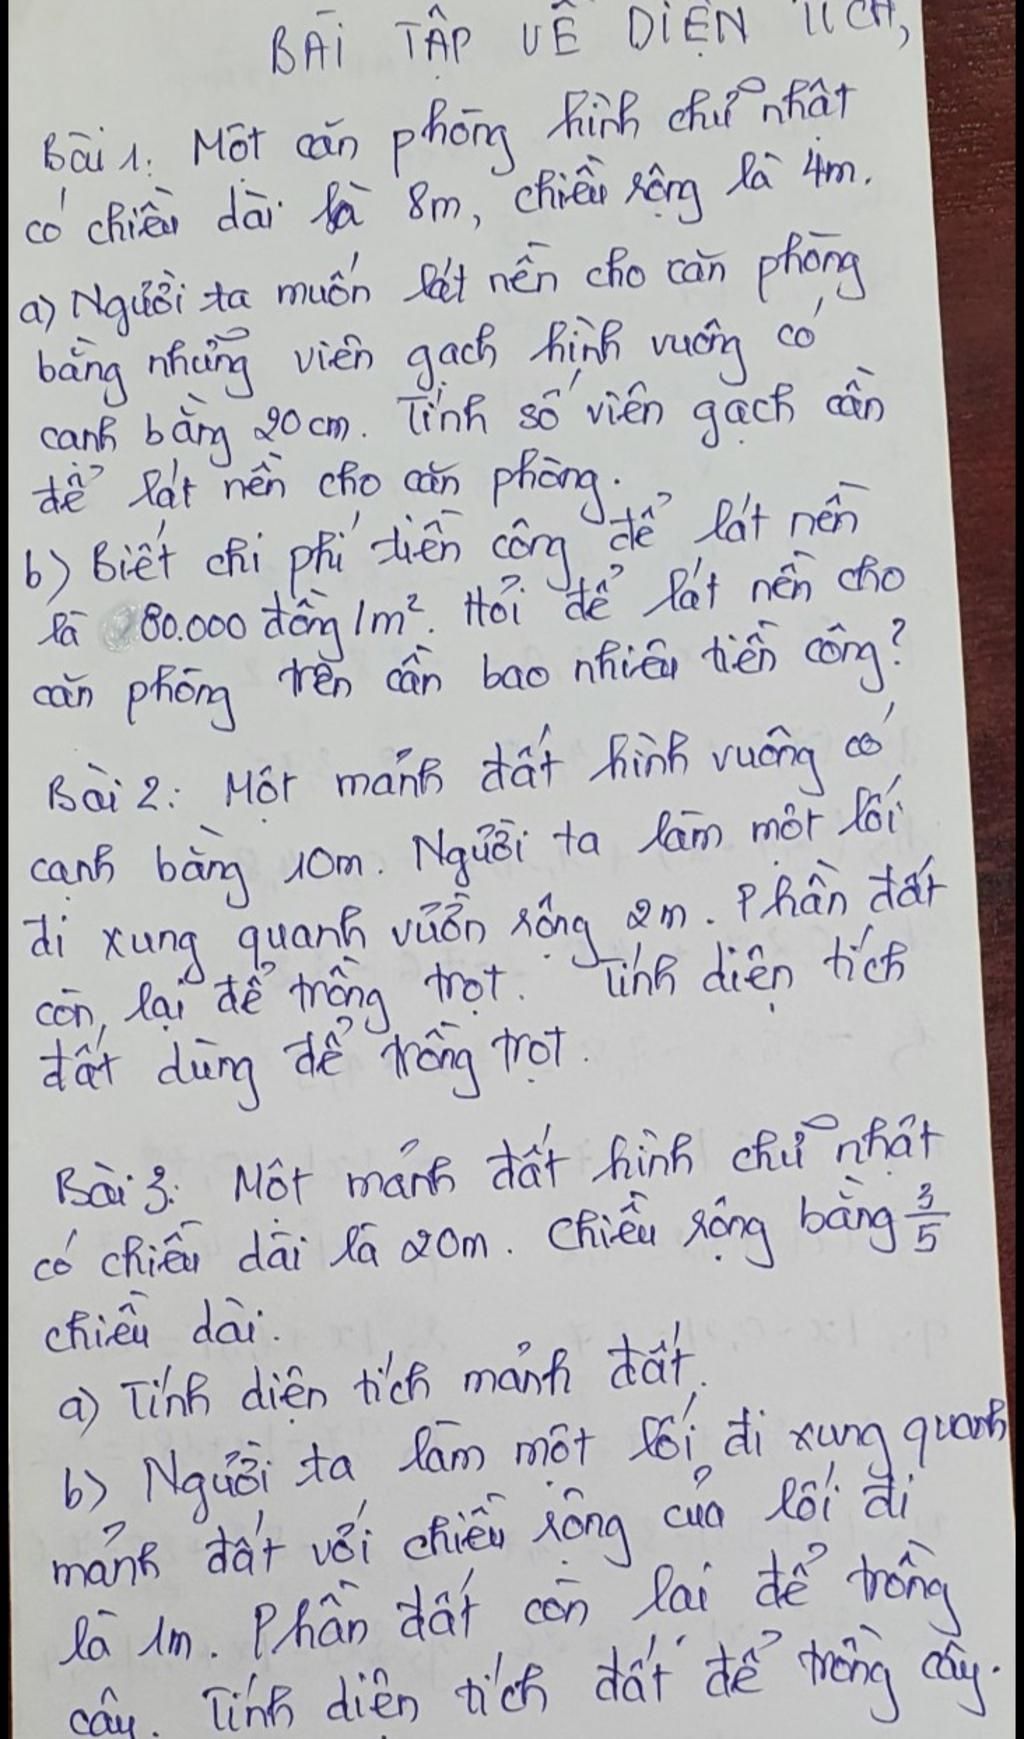 BÀI TẬP VỀ DIỆN TÍCH,
Bài 1: Một căn phòng hình chữ nhật
có chiều dài là 8m, chiều rộng là 4m.
a) Người ta muốn lát nền cho căn phòng
bằng những viên gạch hình vuông có
cạnh bằng 20cm. Tính số viên gạch cần
để lát nền cho căn phòng.
b) Biết chi phí tiền công để lát nền
là 80.000 đồng/1m². Hỏi để lát nền cho
căn phòng trên cần bao nhiêu tiền công?
Bài 2: Một mảnh đất hình vuông có
cạnh bằng 10m. Người ta làm một lối
đi xung quanh vườn rộng 2m. Phần đất
còn lại để trồng trọt. Tính diện tích
đất dùng để trồng trọt.
Bài 3: Một mảnh đất hình chữ nhật
có chiều dài là 20m. Chiều rộng bằng 3/5
chiều dài.
a) Tính diện tích mảnh đất.
b) Người ta làm một lối đi xung quanh
mảnh đất với chiều rộng của lối đi
là 1m. Phần đất còn lại để trồng
cây. Tính diện tích đất để trồng cây.